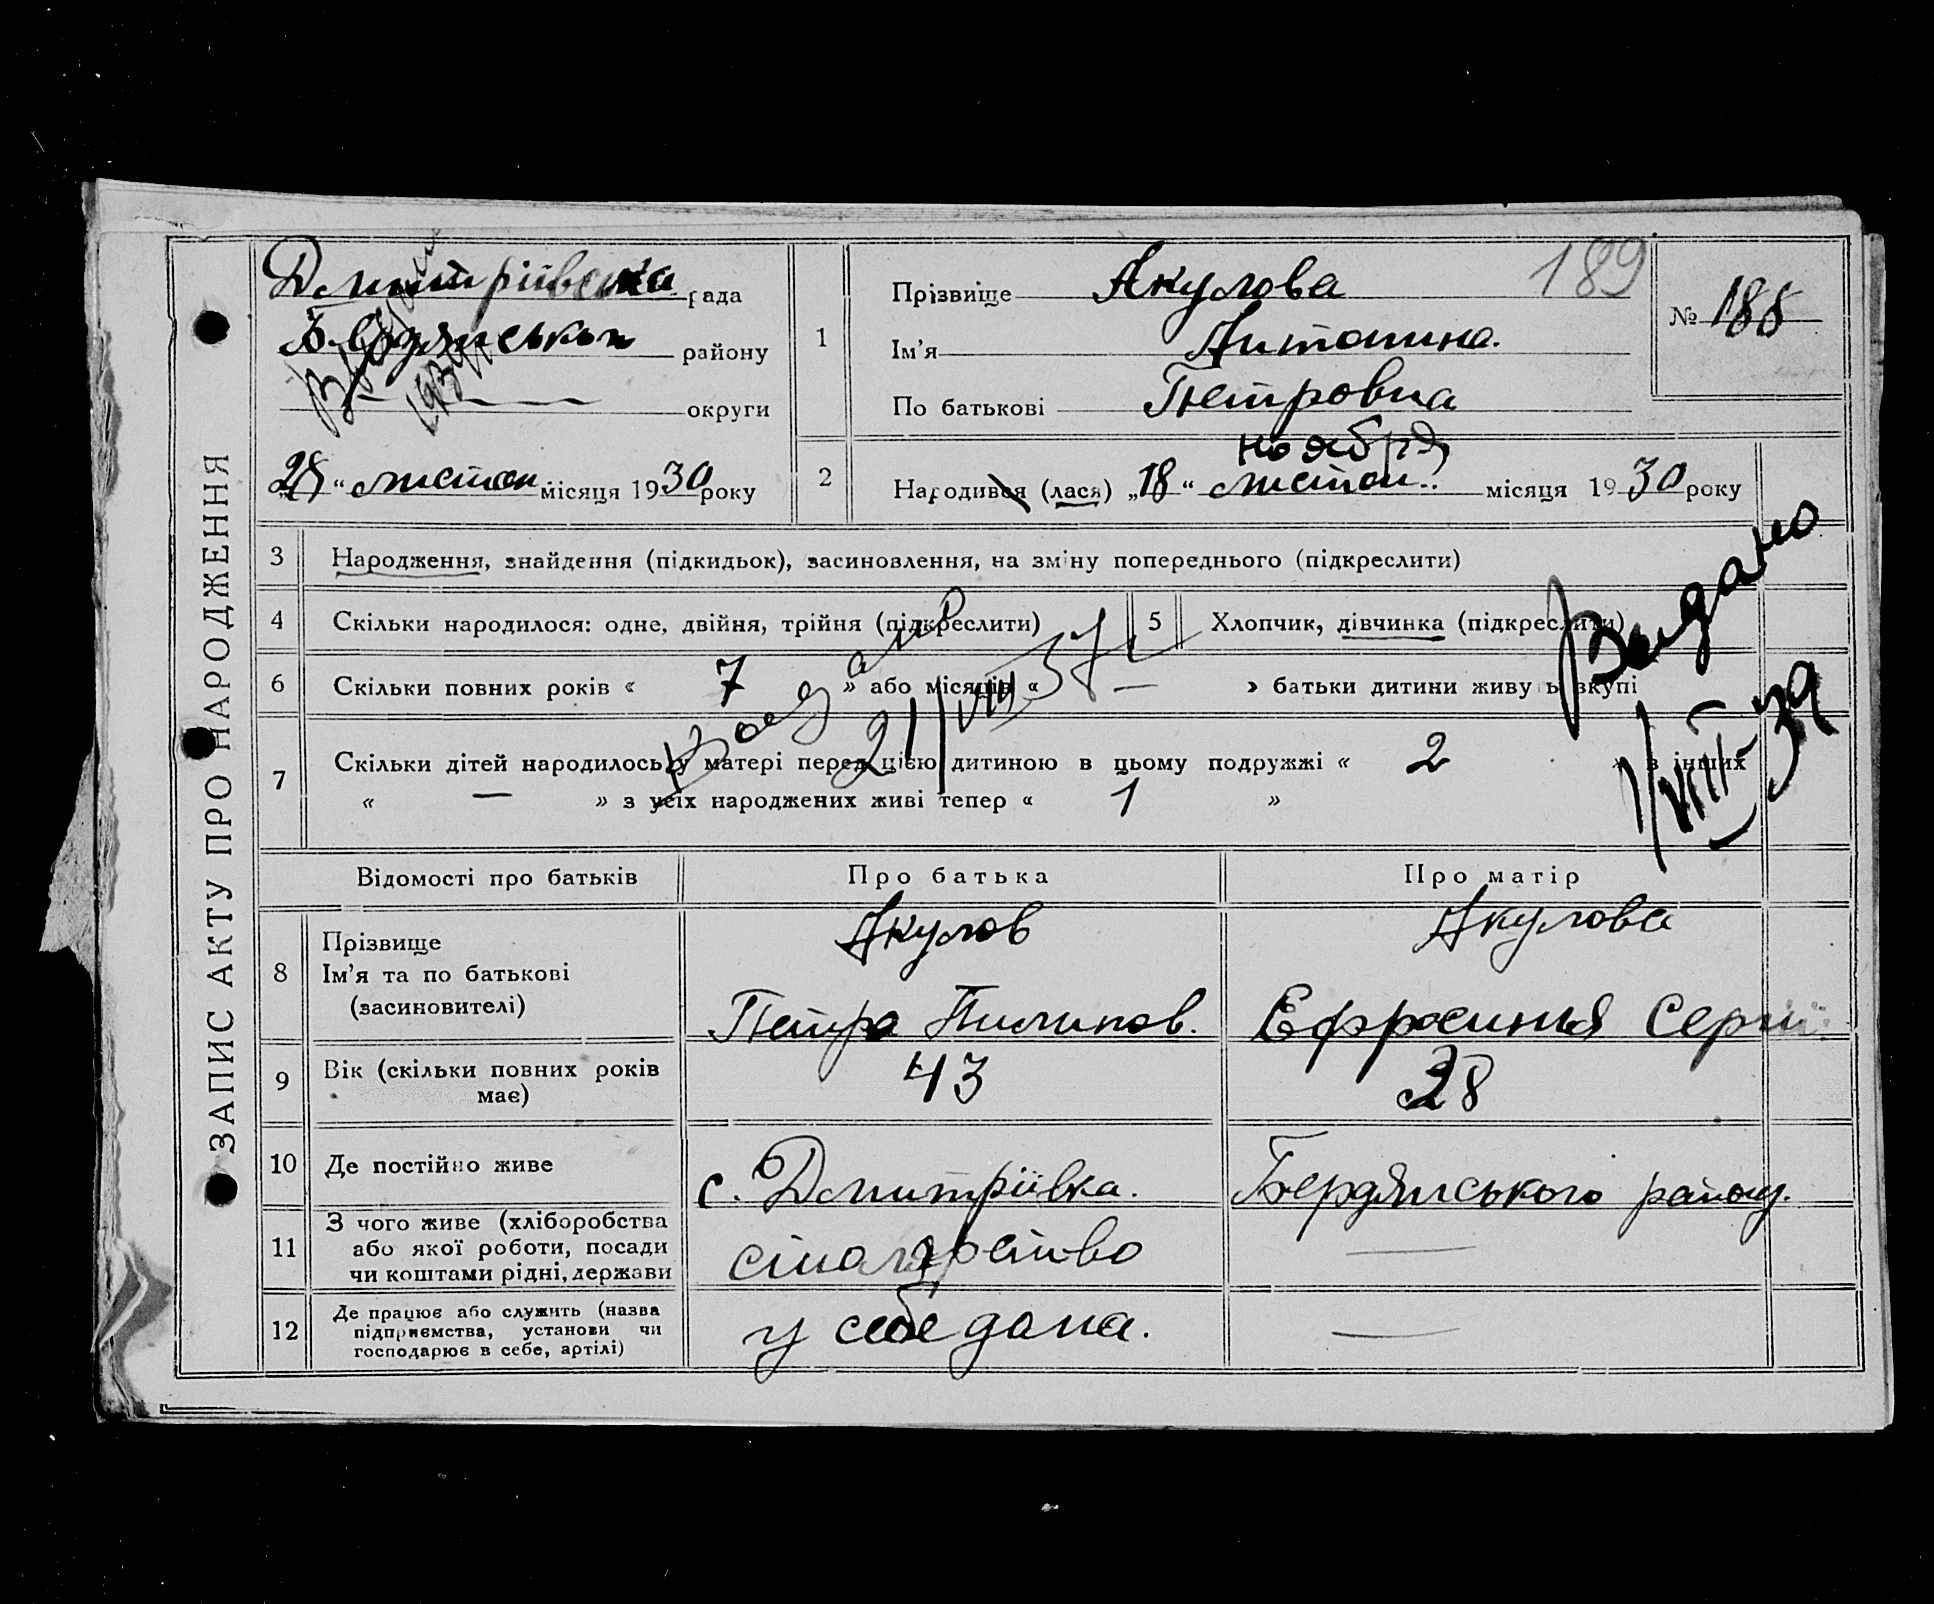 ЗАПИС АКТУ ПРО НАРОДЖЕННЯ
Дмитріївська рада
Бердянськ. району
— округи
„28“ листоп. місяця 1930 року
1
Прізвище Акулова
Ім'я Антонина.
По батькові Петровна
189
№ 188
2
ноября
Народився (лася) „18“ листоп. місяця 1930 року
3 Народження, знайдення (підкидьок), засиновлення, на зміну попереднього (підкреслити)
4 Скільки народилося: одне, двійня, трійня (підкреслити)
5 Хлопчик, дівчинка (підкреслити)
6 Скільки повних років « 7 » або місяців « — » батьки дитини живуть вкупі
7 Скільки дітей народилось у матері перед цією дитиною в цьому подружжі « 2 » в інших
« — » з усіх народжених живі тепер « 1 »
Видано
2/VIII 37
Видано
1/VIII-39
Відомості про батьків Про батька Про матір
8 Прізвище
Ім'я та по батькові
(засиновителі)
Акулов
Петро Пилипов.
Акулова
Ефросиния Сергії.
9 Вік (скільки повних років
має)
43
38
10 Де постійно живе с. Дмитріївка. Бердянського району.
11 З чого живе (хліборобства
або якої роботи, посади
чи коштами рідні, держави
столярство —
12 Де працює або служить (назва
підприємства, установи чи
господарює в себе, артілі)
у себе дома. —